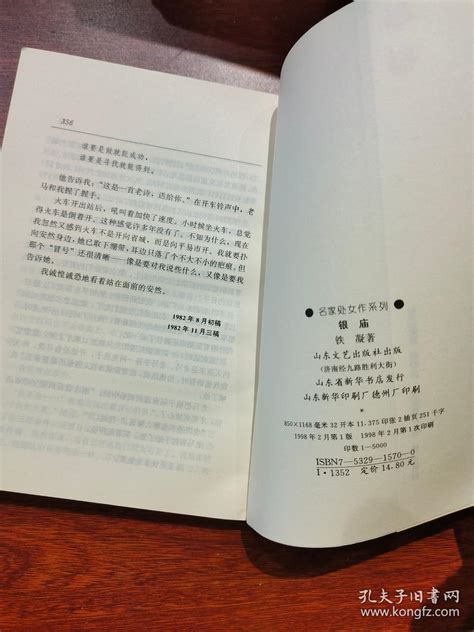 356
谁要是敲就能成功,
谁要是寻找就能得到。
他告诉我:“这是一首老诗,送给你。”在开车铃声中,老
马和我握了握手。
火车开出站后,吼叫着加快了速度。小时候坐火车,总觉
得火车是倒着开。这种感觉许多年没有了。不知为什么,现在
我忽然又感到火车不是开向省城,而是向平易市开。我就要扑
向安然身边,她已取下绷带,耳边只落了个不大不小的疤痕。但
那个“冒号”还很清晰——像是要对我说些什么,又像是要我
告诉她。
我诚惶诚恐地看着站在面前的安然。
1982年8月初稿
1982年11月三稿
●名家处女作系列●
银庙
铁凝著
山东文艺出版社出版
(济南经九路胜利大街)
山东省新华书店发行
山东新华印刷厂德州厂印刷
*
850×1168毫米32开本11.375印张2插页251千字
1998年2月第1版 1998年2月第1次印刷
印数1—5000
ISBN7—5329—1570—0
I·1352 定价14.80元
孔夫子旧书网
www.kongfz.com